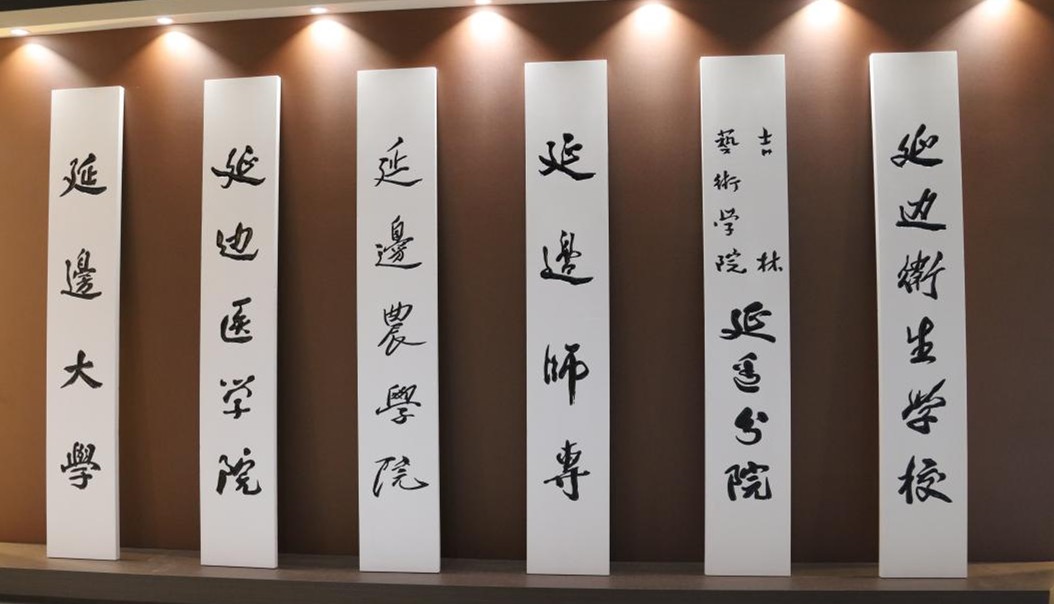 延邊大學
延边医学院
延邊農學院
延邊师專
吉林
藝術学院
延邊分院
延边衛生学校